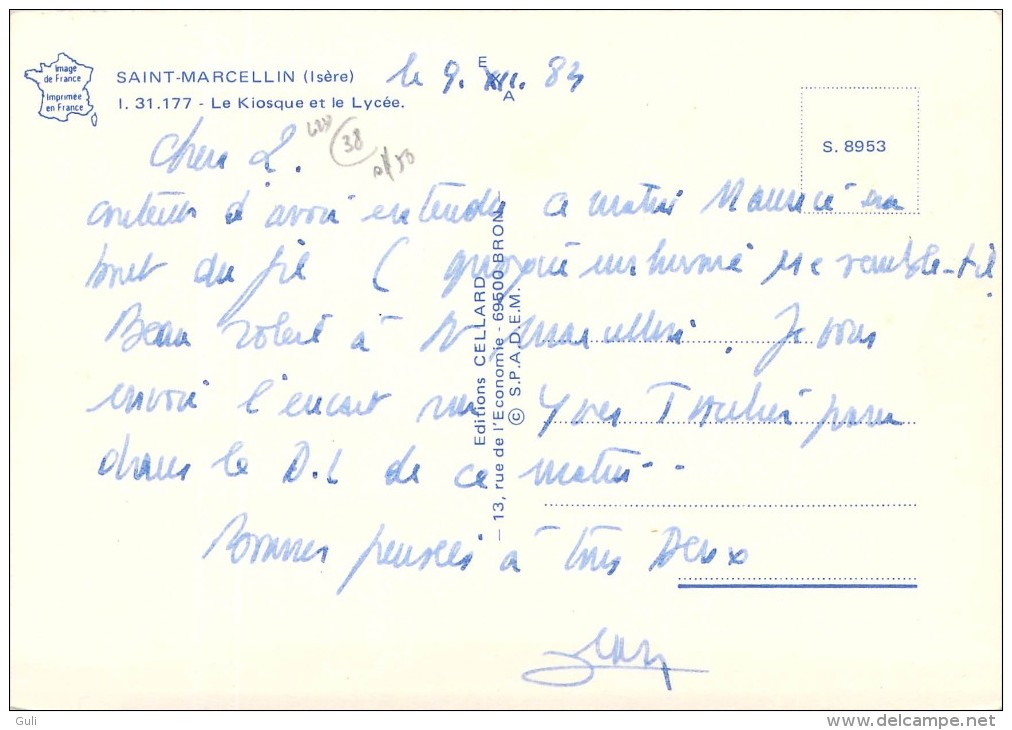 Image
de France
Imprimée
en France
SAINT-MARCELLIN (Isère)
I. 31.177 - Le Kiosque et le Lycée.
le 9. XII. 83
E
A
S. 8953
38
Chers 2.
d'avoir entendu ce matin Maurice en
bout du fil (
Beau soleil à St Marcellin. Je vous
envoie l'encart sur Yves paru
dans le D.L de ce matin..
Bonnes pensées à tous Deux
Jean
Editions CELLARD
— 13, rue de l'Economie - 69500 BRON —
© S.P.A.D.E.M.
Guli
delcampe.net